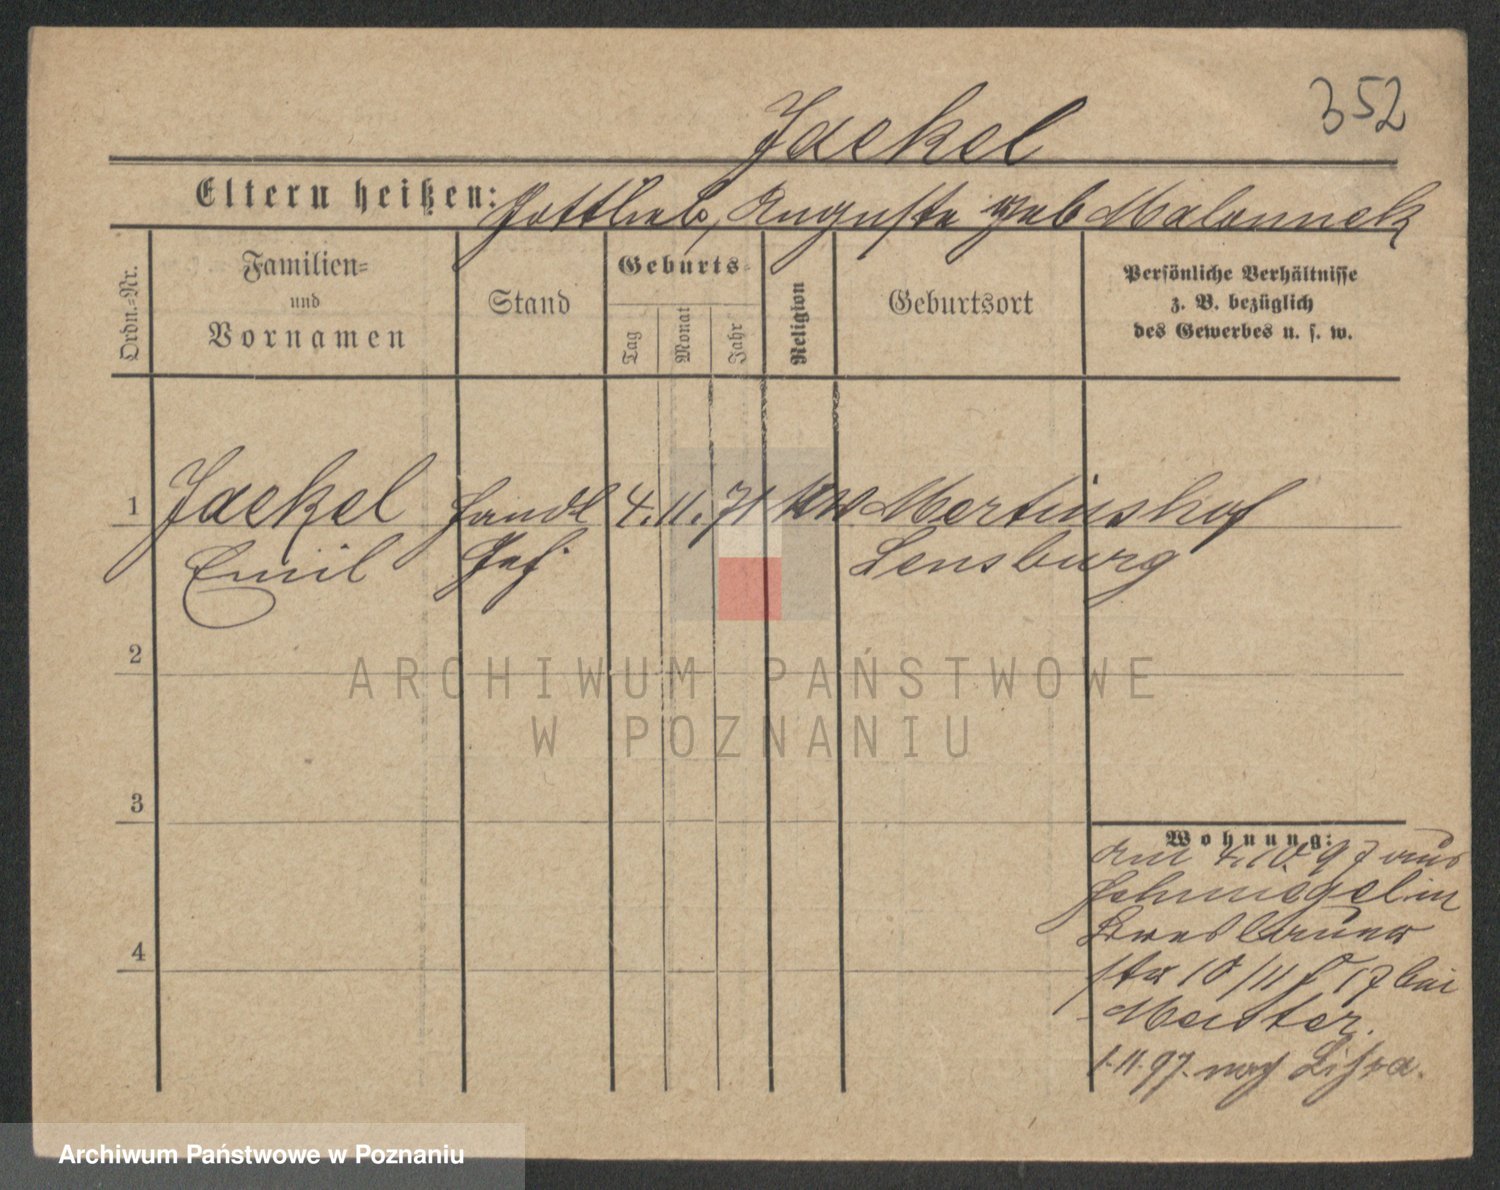 352
Jaekel
Eltern heißen: Gottlieb, Auguste geb Malonnek
Ordn.=Nr.
Familien=
und
Vornamen
Stand
Geburts=
Tag
Monat
Jahr
Religion
Geburtsort
Persönliche Verhältnisse
z. B. bezüglich
des Gewerbes u. s. w.
1 Jaekel Handl 4. 11. 71 Mertinshof
Emil Geh. Sensburg
2
3
4
Wohnung:
Am 4.10.97 aus
Schmiegel in
Breslauer
str 10/11 H 17 bei
Meister.
1.11.97. nach Lissa.
ARCHIWUM PAŃSTWOWE
W POZNANIU
Archiwum Państwowe w Poznaniu